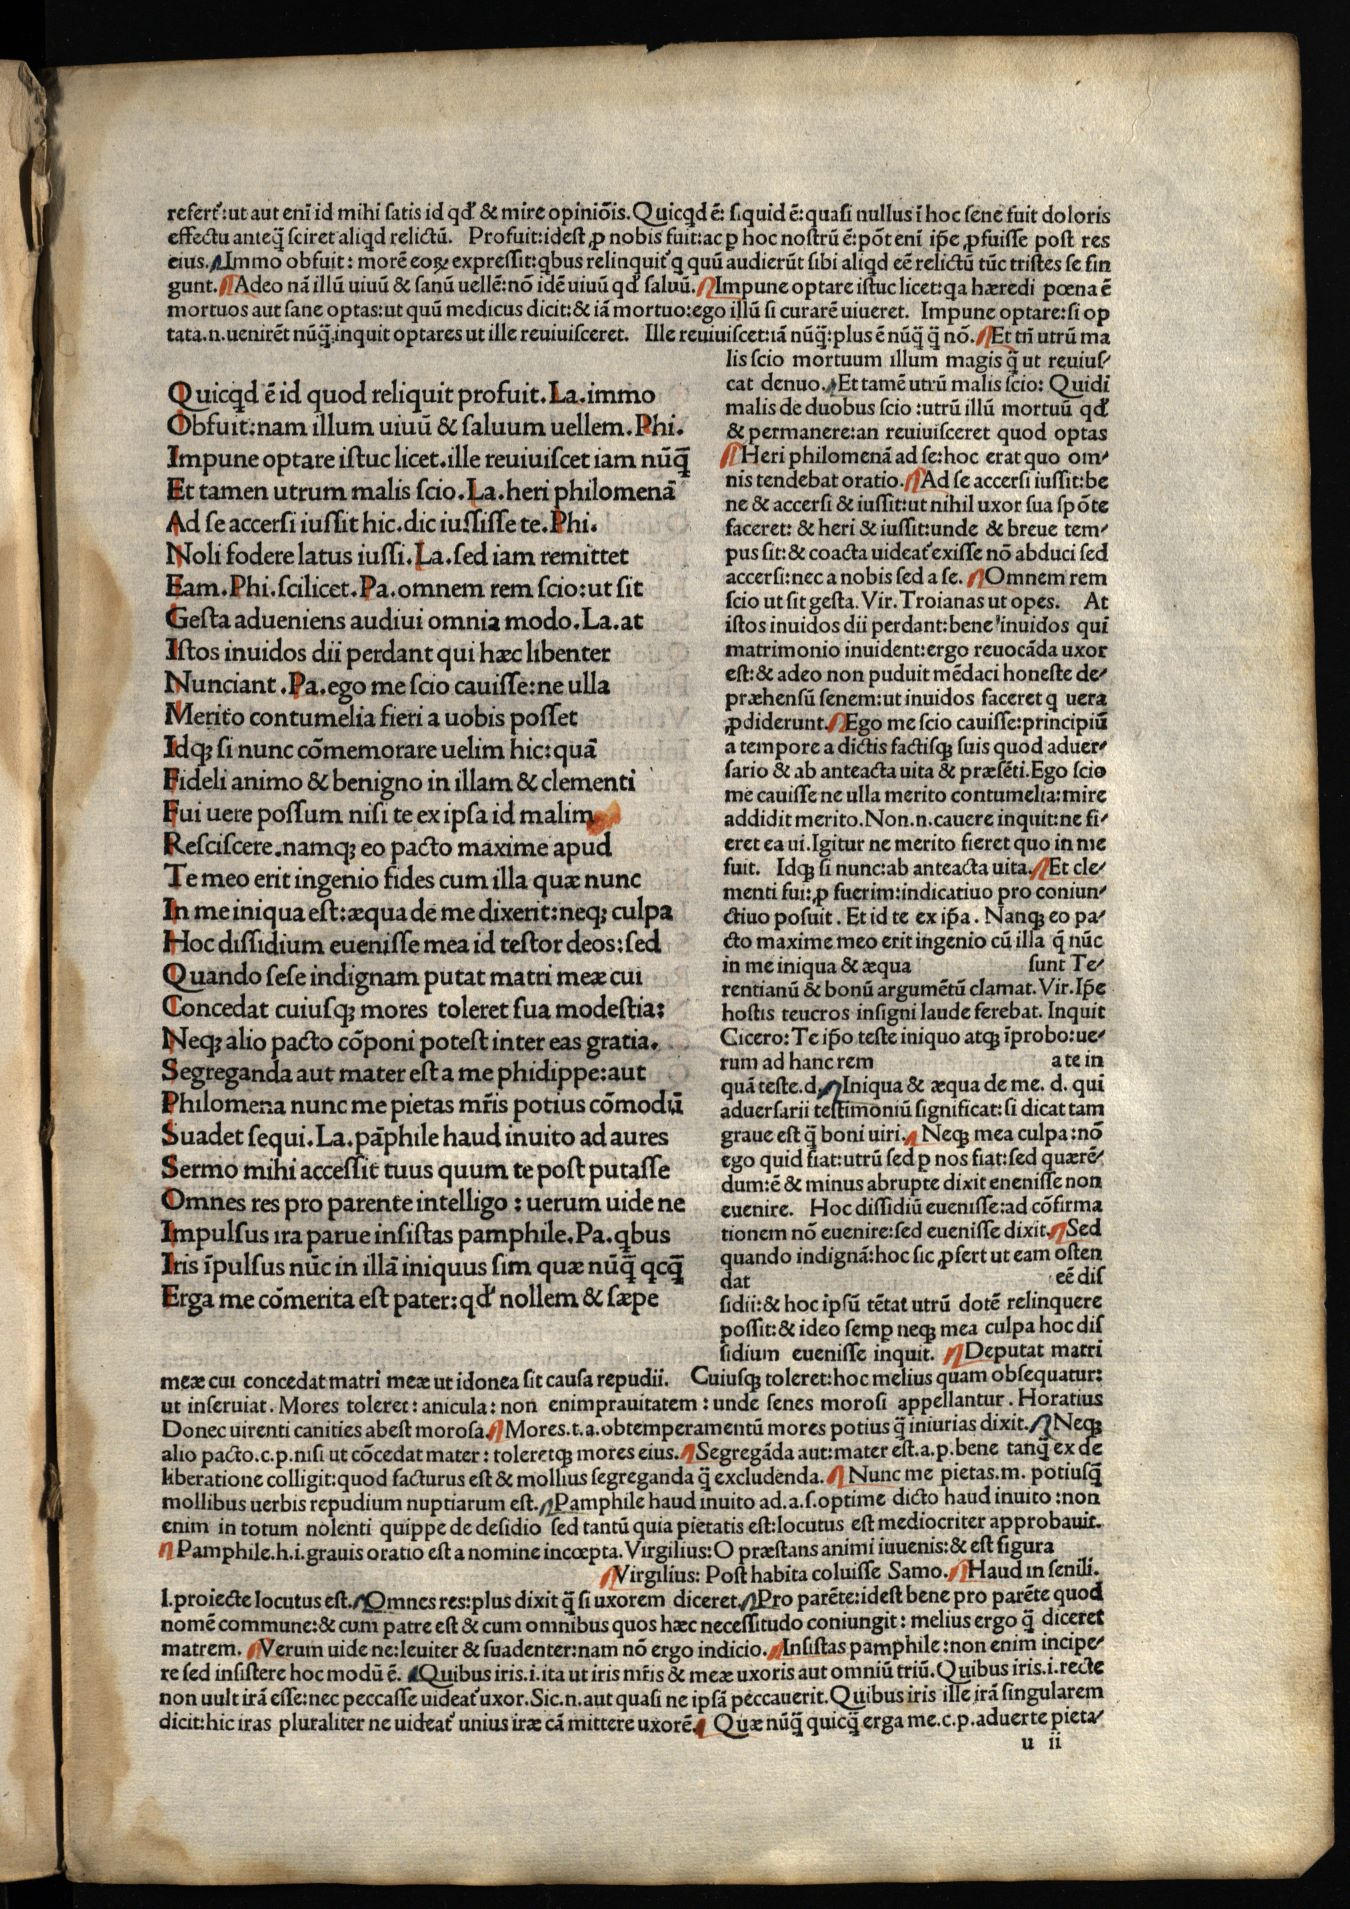 refert᷑:ut aut enī id mihi satis id qđ & mire opiniōis. Quicqd ē: siquid ē:quasi nullus ī hoc sene fuit doloris
effectu anteq̄ sciret aliqd relictū. Profuit:idest ꝓ nobis fuit:ac p hoc nostrū ē:pōt enī ip̄e ꝓfuisse post res
eius. Immo obfuit: morē eoꝝ expressit:qbus relinquit᷑ q quū audierūt sibi aliqd eē relictū tūc tristes se fin
gunt. Adeo nā illū uiuū & sanū uellē:nō idē uiuū qđ saluū. Impune optare istuc licet:qa hæredi pœna ē
mortuos aut sane optas:ut quū medicus dicit:& iā mortuo:ego illū si curarē uiueret. Impune optare:si op
tata.n.uenirēt nūq̄.inquit optares ut ille reuiuisceret. Ille reuiuiscet:iā nūq̄:plus ē nūq̄ q̄ nō. Et tn̄ utrū ma
lis scio mortuum illum magis q̄ ut reuius-
cat denuo. Et tamē utrū malis scio: Quidi
malis de duobus scio :utrū illū mortuū qđ
& permanere:an reuiuisceret quod optas
Heri philomenā ad se:hoc erat quo om-
nis tendebat oratio. Ad se accersi iussit:be
ne & accersi & iussit:ut nihil uxor sua spōte
faceret: & heri & iussit:unde & breue tem-
pus sit:& coacta uideat᷑ exisse nō abduci sed
accersi:nec a nobis sed a se. Omnem rem
scio ut sit gesta. Vir. Troianas ut opes. At
istos inuidos dii perdant:bene inuidos qui
matrimonio inuident:ergo reuocāda uxor
est:& adeo non puduit mēdaci honeste de-
præhensū senem:ut inuidos faceret q uera
ꝓdiderunt. Ego me scio cauisse:principiū
a tempore a dictis factisqꝫ suis quod aduer-
sario & ab anteacta uita & præsēti. Ego scio
me cauisse ne ulla merito contumelia:mire
addidit merito. Non.n.cauere inquit:ne fi-
eret ea ui. Igitur ne merito fieret quo in me
fuit. Idqꝫ si nunc:ab anteacta uita. Et cle-
menti fui:ꝓ fuerim:indicatiuo pro coniun-
ctiuo posuit. Et id te ex ip̄a. Nanqꝫ eo pa-
cto maxime meo erit ingenio cū illa q̄ nūc
in me iniqua & æqua sunt Te-
rentianū & bonū argumētū clamat. Vir. Ip̄e
hostis teucros insigni laude ferebat. Inquit
Cicero: Te ip̄o teste iniquo atqꝫ īprobo:ue-
rum ad hanc rem a te in
quā teste.d. Iniqua & æqua de me. d. qui
aduersarii testimoniū significat:si dicat tam
graue est q̄ boni uiri. Neqꝫ mea culpa:nō
ego quid fiat:utrū sed p nos fiat:sed quærē-
dum:ē & minus abrupte dixit enenisse non
euenire. Hoc dissidiū euenisse:ad cōfirma
tionem nō euenire:sed euenisse dixit. Sed
quando indignā:hoc sic ꝓfert ut eam osten
dat eē dis
sidii:& hoc ipsū tētat utrū dotē relinquere
possit:& ideo semp neqꝫ mea culpa hoc dis
sidium euenisse inquit. Deputat matri
Quicqd ē id quod reliquit profuit. La. immo
Obfuit:nam illum uiuū & saluum uellem. Phi.
Impune optare istuc licet.ille reuiuiscet iam nūq̄
Et tamen utrum malis scio. La. heri philomenā
Ad se accersi iussit hic.dic iussisse te. Phi.
Noli fodere latus iussi. La. sed iam remittet
Eam. Phi. scilicet. Pa. omnem rem scio:ut sit
Gesta adueniens audiui omnia modo. La. at
Istos inuidos dii perdant qui hæc libenter
Nunciant. Pa. ego me scio cauisse:ne ulla
Merito contumelia fieri a uobis posset
Idqꝫ si nunc cōmemorare uelim hic:quā
Fideli animo & benigno in illam & clementi
Fui uere possum nisi te ex ipsa id malim
Resciscere.namqꝫ eo pacto maxime apud
Te meo erit ingenio fides cum illa quæ nunc
In me iniqua est:æqua de me dixerit:neqꝫ culpa
Hoc dissidium euenisse mea id testor deos:sed
Quando sese indignam putat matri meæ cui
Concedat cuiusqꝫ mores toleret sua modestia:
Neqꝫ alio pacto cōponi potest inter eas gratia.
Segreganda aut mater est a me phidippe:aut
Philomena nunc me pietas mr̄is potius cōmodū
Suadet sequi. La. pāphile haud inuito ad aures
Sermo mihi accessit tuus quum te post putasse
Omnes res pro parente intelligo : uerum uide ne
Impulsus ira parue insistas pamphile. Pa. qbus
Iris īpulsus nūc in illā iniquus sim quæ nūq̄ qcq̄
Erga me cōmerita est pater:qđ nollem & sæpe
meæ cui concedat matri meæ ut idonea sit causa repudii. Cuiusqꝫ toleret:hoc melius quam obsequatur:
ut inseruiat. Mores toleret: anicula: non enimprauitatem : unde senes morosi appellantur . Horatius
Donec uirenti canities abest morosa. Mores.t.a.obtemperamentū mores potius q̄ iniurias dixit. Neqꝫ
alio pacto.c.p.nisi ut cōcedat mater : toleretqꝫ mores eius. Segregāda aut:mater est.a.p.bene tanq̄ ex de
liberatione colligit:quod facturus est & mollius segreganda q̄ excludenda. Nunc me pietas.m. potiusq̄
mollibus uerbis repudium nuptiarum est. Pamphile haud inuito ad.a.s.optime dicto haud inuito :non
enim in totum nolenti quippe de desidio sed tantū quia pietatis est:locutus est mediocriter approbauit.
Pamphile.h.i.grauis oratio est a nomine incœpta. Virgilius:O præstans animi iuuenis:& est figura
Virgilius: Post habita coluisse Samo. Haud in senili.
l.proiecte locutus est. Omnes res:plus dixit q̄ si uxorem diceret. Pro parēte:idest bene pro parēte quod
nomē commune:& cum patre est & cum omnibus quos hæc necessitudo coniungit : melius ergo q̄ diceret
matrem. Verum uide ne:leuiter & suadenter:nam nō ergo indicio. Insistas pamphile:non enim incipe-
re sed insistere hoc modū ē. Quibus iris.i.ita ut iris mr̄is & meæ uxoris aut omniū triū. Quibus iris.i.recte
non uult irā esse:nec peccasse uideat᷑ uxor. Sic.n.aut quasi ne ipsā peccauerit. Quibus iris ille irā singularem
dicit:hic iras pluraliter ne uideat᷑ unius iræ cā mittere uxorē. Quæ nūq̄ quicq̄ erga me.c.p.aduerte pieta-
u ii